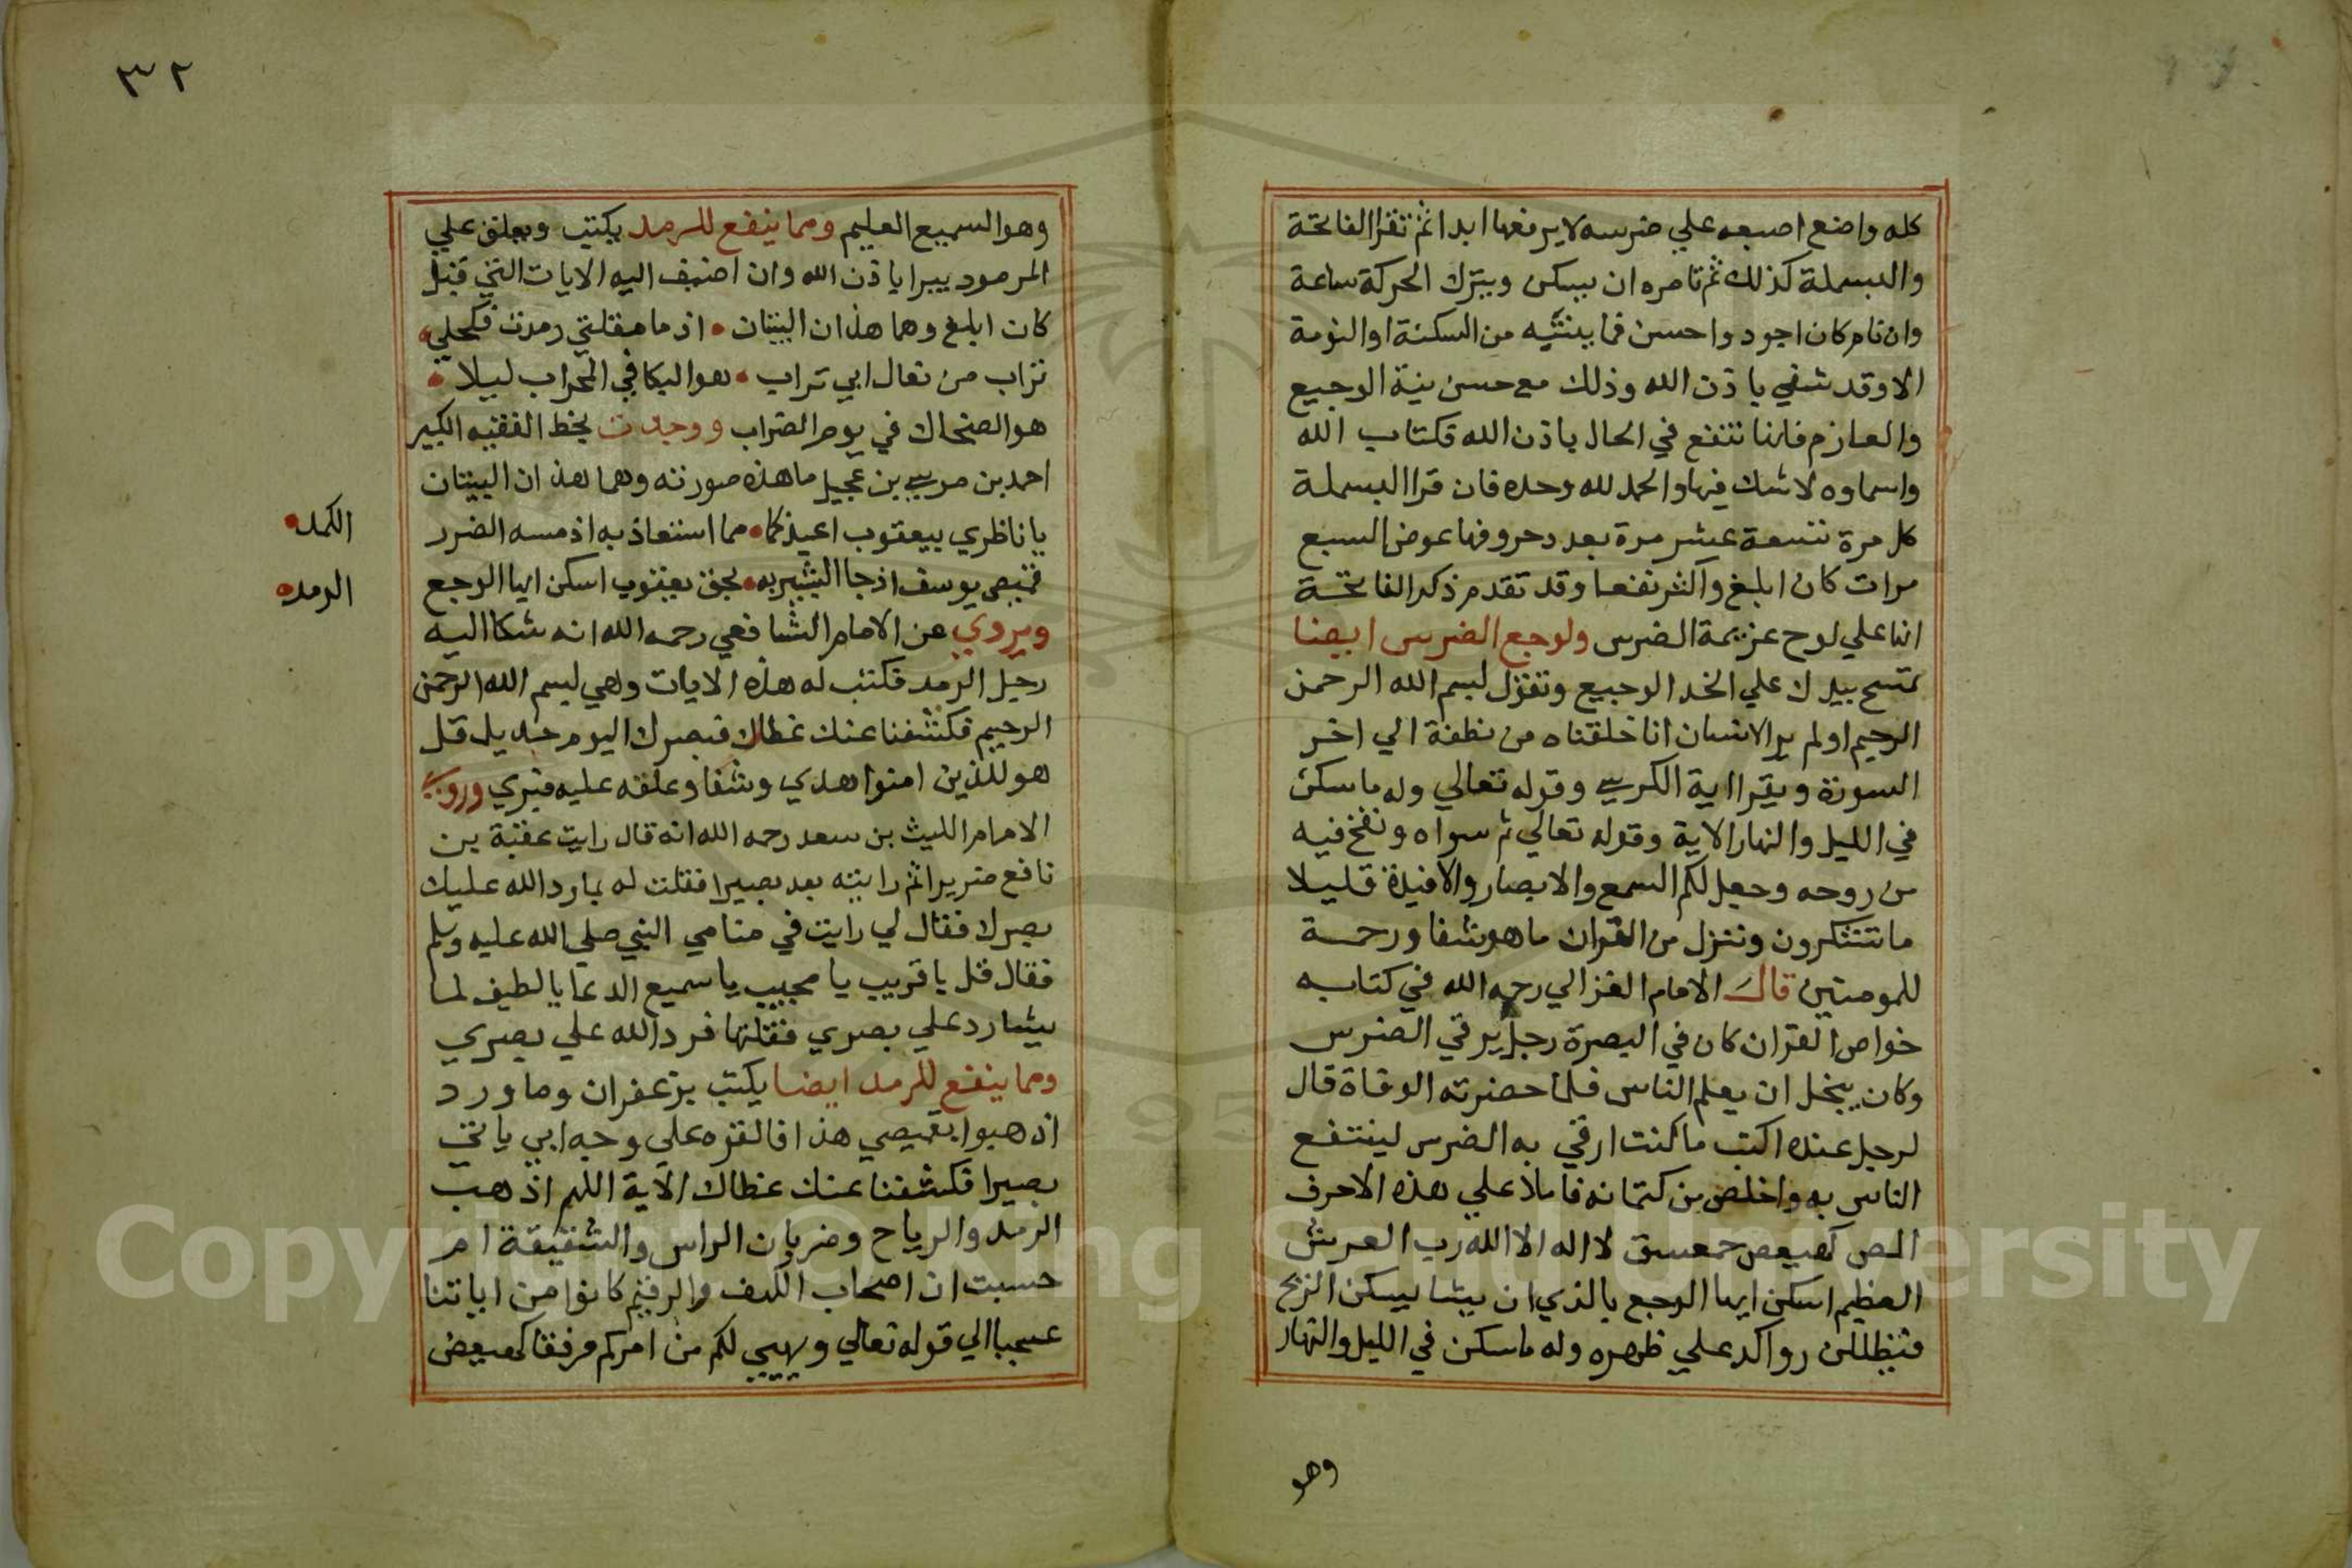 كله واضع اصبعه علي ضرسه لا يرفعها ابدا ثم تقرا الفاتحة
والبسملة كذلك ثم تامره ان يسكن ويترك الحركة ساعة
وان نام كان اجود واحسن فما ينتبه من السكتة او النومة
الا وقد شفي باذن الله وذلك مع حسن نية الوجيع
والعازم فانها تنفع في الحال باذن الله فكتاب الله
واسماوه لا شك فيها والحمد لله وحده فان قرا البسملة
كل مرة تسعة عشر مرة بعدد حروفها عوض السبع
مرات كان ابلغ واكثر نفعا وقد تقدم ذكر الفاتحة
انها علي لوح عزيمة الضرس ولوجع الضرس ايضا
تمسح بيدك علي الخد الوجيع وتقول بسم الله الرحمن
الرحيم اولم ير الانسان انا خلقناه من نطفة الي اخر
السورة ويقرا اية الكرسي وقوله تعالي وله ما سكن
في الليل والنهار الاية وقوله تعالي ثم سواه ونفخ فيه
من روحه وجعل لكم السمع والابصار والافيدة قليلا
ما تتشكرون وننزل من القران ما هو شفا ورحمة
للمومنين قال الامام الغزالي رحمه الله في كتابه
خواص القران كان في البصرة رجل يرقي الضرس
وكان يبخل ان يعلم الناس فلما حضرته الوفاة قال
لرجل عنده اكتب ما كنت ارقي به الضرس لينتفع
الناس به واخلص من كتمانه فاملا علي هذه الاحرف
المص كهيعص حمعسق لا اله الا الله رب العرش
العظيم اسكن ايها الوجع بالذي ان يشا يسكن الريح
فيظللن رواكد علي ظهره وله ما سكن في الليل والنهار
وهو
٣٢
وهو السميع العليم ومما ينفع للرمد يكتب ويعلق علي
المرمود يبرا باذن الله وان اضيف اليه الايات التي قبل
كان ابلغ وهما هذان البيتان اذ ما مقلتي رمدت فكحلي
تراب من نعال ابي تراب هو البكا في المحراب ليلا
هو الضحاك في يوم الضراب ووجدت بخط الفقيه الكبير
احمد بن موسي بن عجيل ما هذه صورته وهما هذان البيتان
يا ناظري بيعقوب اعيذكما مما استعاذ به اذ مسه الضرر
قميص يوسف اذ جا البشير به بحق يعقوب اسكن ايها الوجع
ويروي عن الامام الشافعي رحمه الله انه شكا اليه
رجل الرمد فكتب له هذه الايات وهي بسم الله الرحمن
الرحيم فكشفنا عنك غطاك فبصرك اليوم حديد قل
هو للذين امنوا هدي وشفا وعلقه عليه فبري وروي
الامام الليث بن سعد رحمه الله انه قال رايت عقبة بن
نافع ضريرا ثم رايته بعد بصيرا فقلت له بما رد الله عليك
بصرك فقال لي رايت في منامي النبي صلي الله عليه وسلم
فقال قل يا قريب يا مجيب يا سميع الدعا يا لطيف لما
يشا رد علي بصري فقلتها فرد الله علي بصري
ومما ينفع للرمد ايضا يكتب بزعفران وماورد
اذهبوا بقميصي هذا فالقوه علي وجه ابي يات
بصيرا فكشفنا عنك غطاك الاية اللهم اذهب
الرمد والرياح وضربان الراس والشقيقة ام
حسبت ان اصحاب الكهف والرقيم كانوا من اياتنا
عجبا الي قوله تعالي ويهيي لكم من امركم مرفقا كهيعص
الكمد
الرمد
Copyright © King Saud University